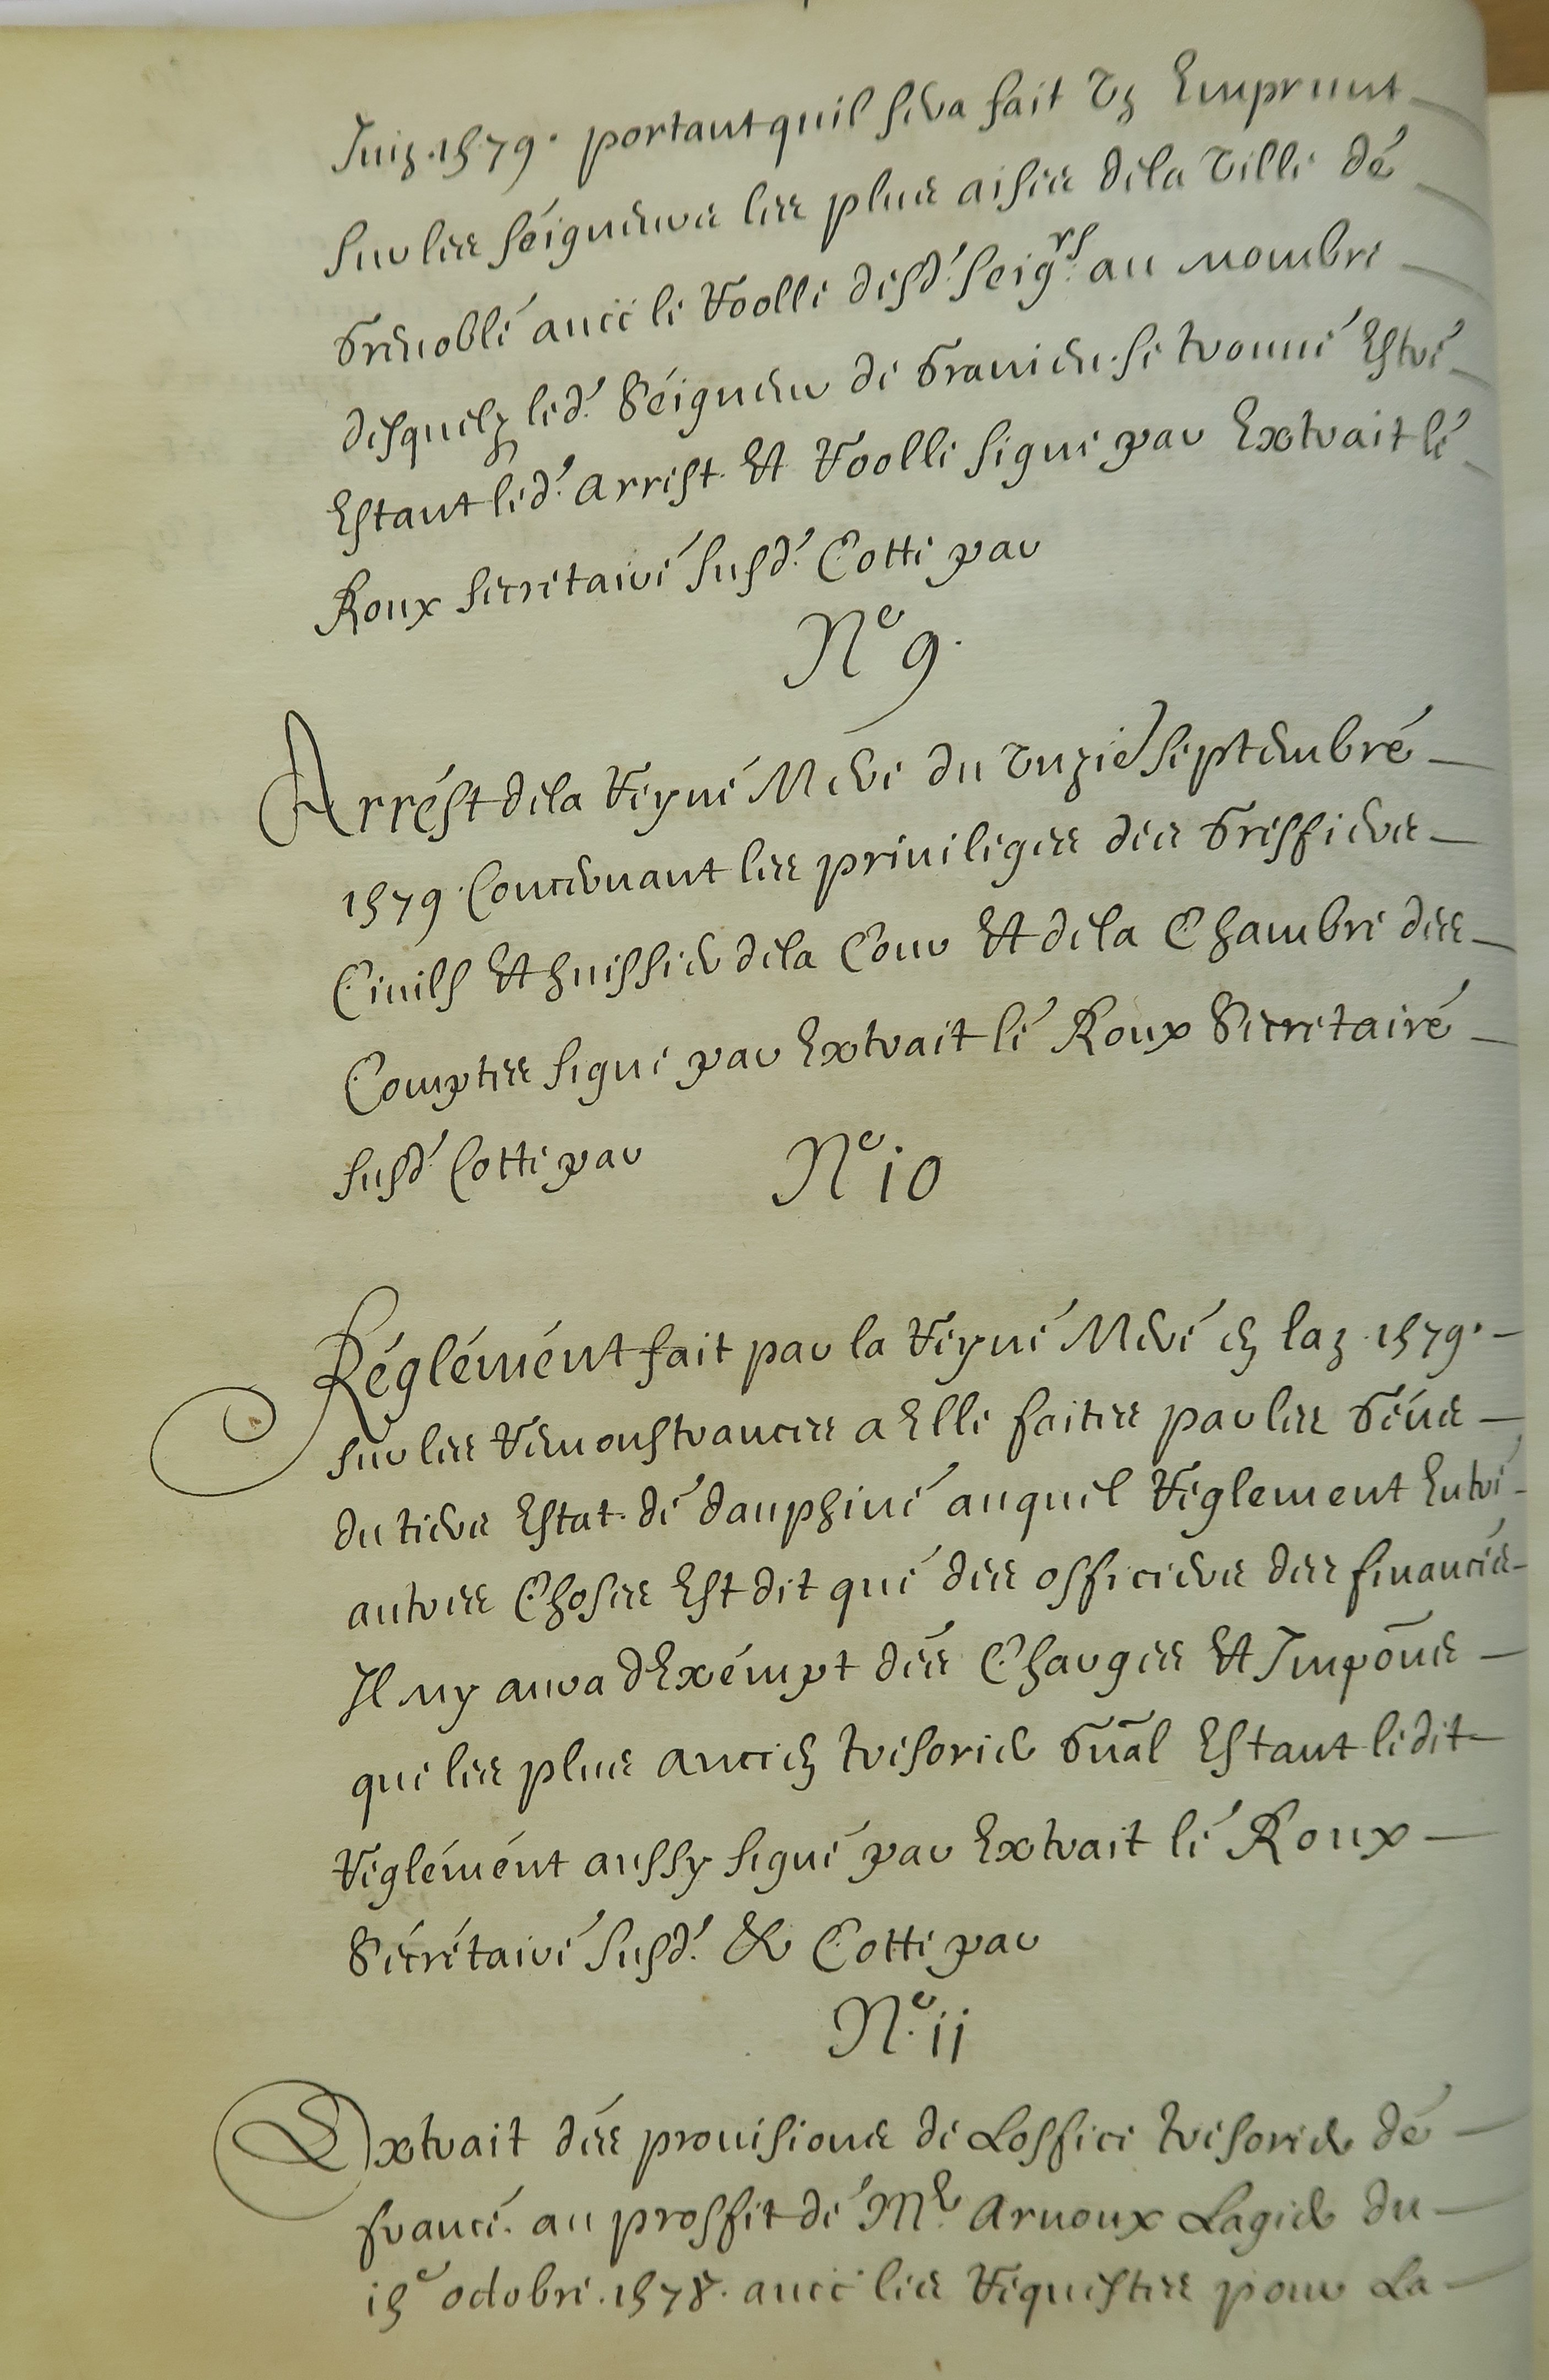 Juin .1579. portant quil sera fait Un Emprunt
sur les seigneurs les plus aises de la Ville de
Grenoble auec le Roolle desd. Seigrs. au nombre
desquelz led. Seigneur de Grauier se trouue Estre
Estant led. arrest Et Roolle signe par Extrait le
Roux secretaire susd. Cotte par
No 9.
Arrest de la Reyne Mere du Unzie septembre
1579. Concernant les priuileges des Greffiers
Ciuils Et huissier de la Cour Et de la Chambre des
Comptes signe par Extrait le Roux Secretaire
susd. Cotte par No 10
Reglement fait par la Reyne Mere en lan .1579.
sur les Remonstrances a Elle faites par les Gens
du tiers Estat de dauphiné auquel Reglement Entre
autres Choses Est dit que des officiers des finances
Il ny aura dExempt des Charges Et Impons
que les plus ancien tresorier Gnal Estant ledit
Reglement aussy signe par Extrait le Roux
Secretaire susd. & Cotte par
No. 11
Extrait des prouisions de Loffice tresorier de
france. au proffit de Mr. Arnoux Lagier du
15e octobre .1578. auec les Requestes pour La